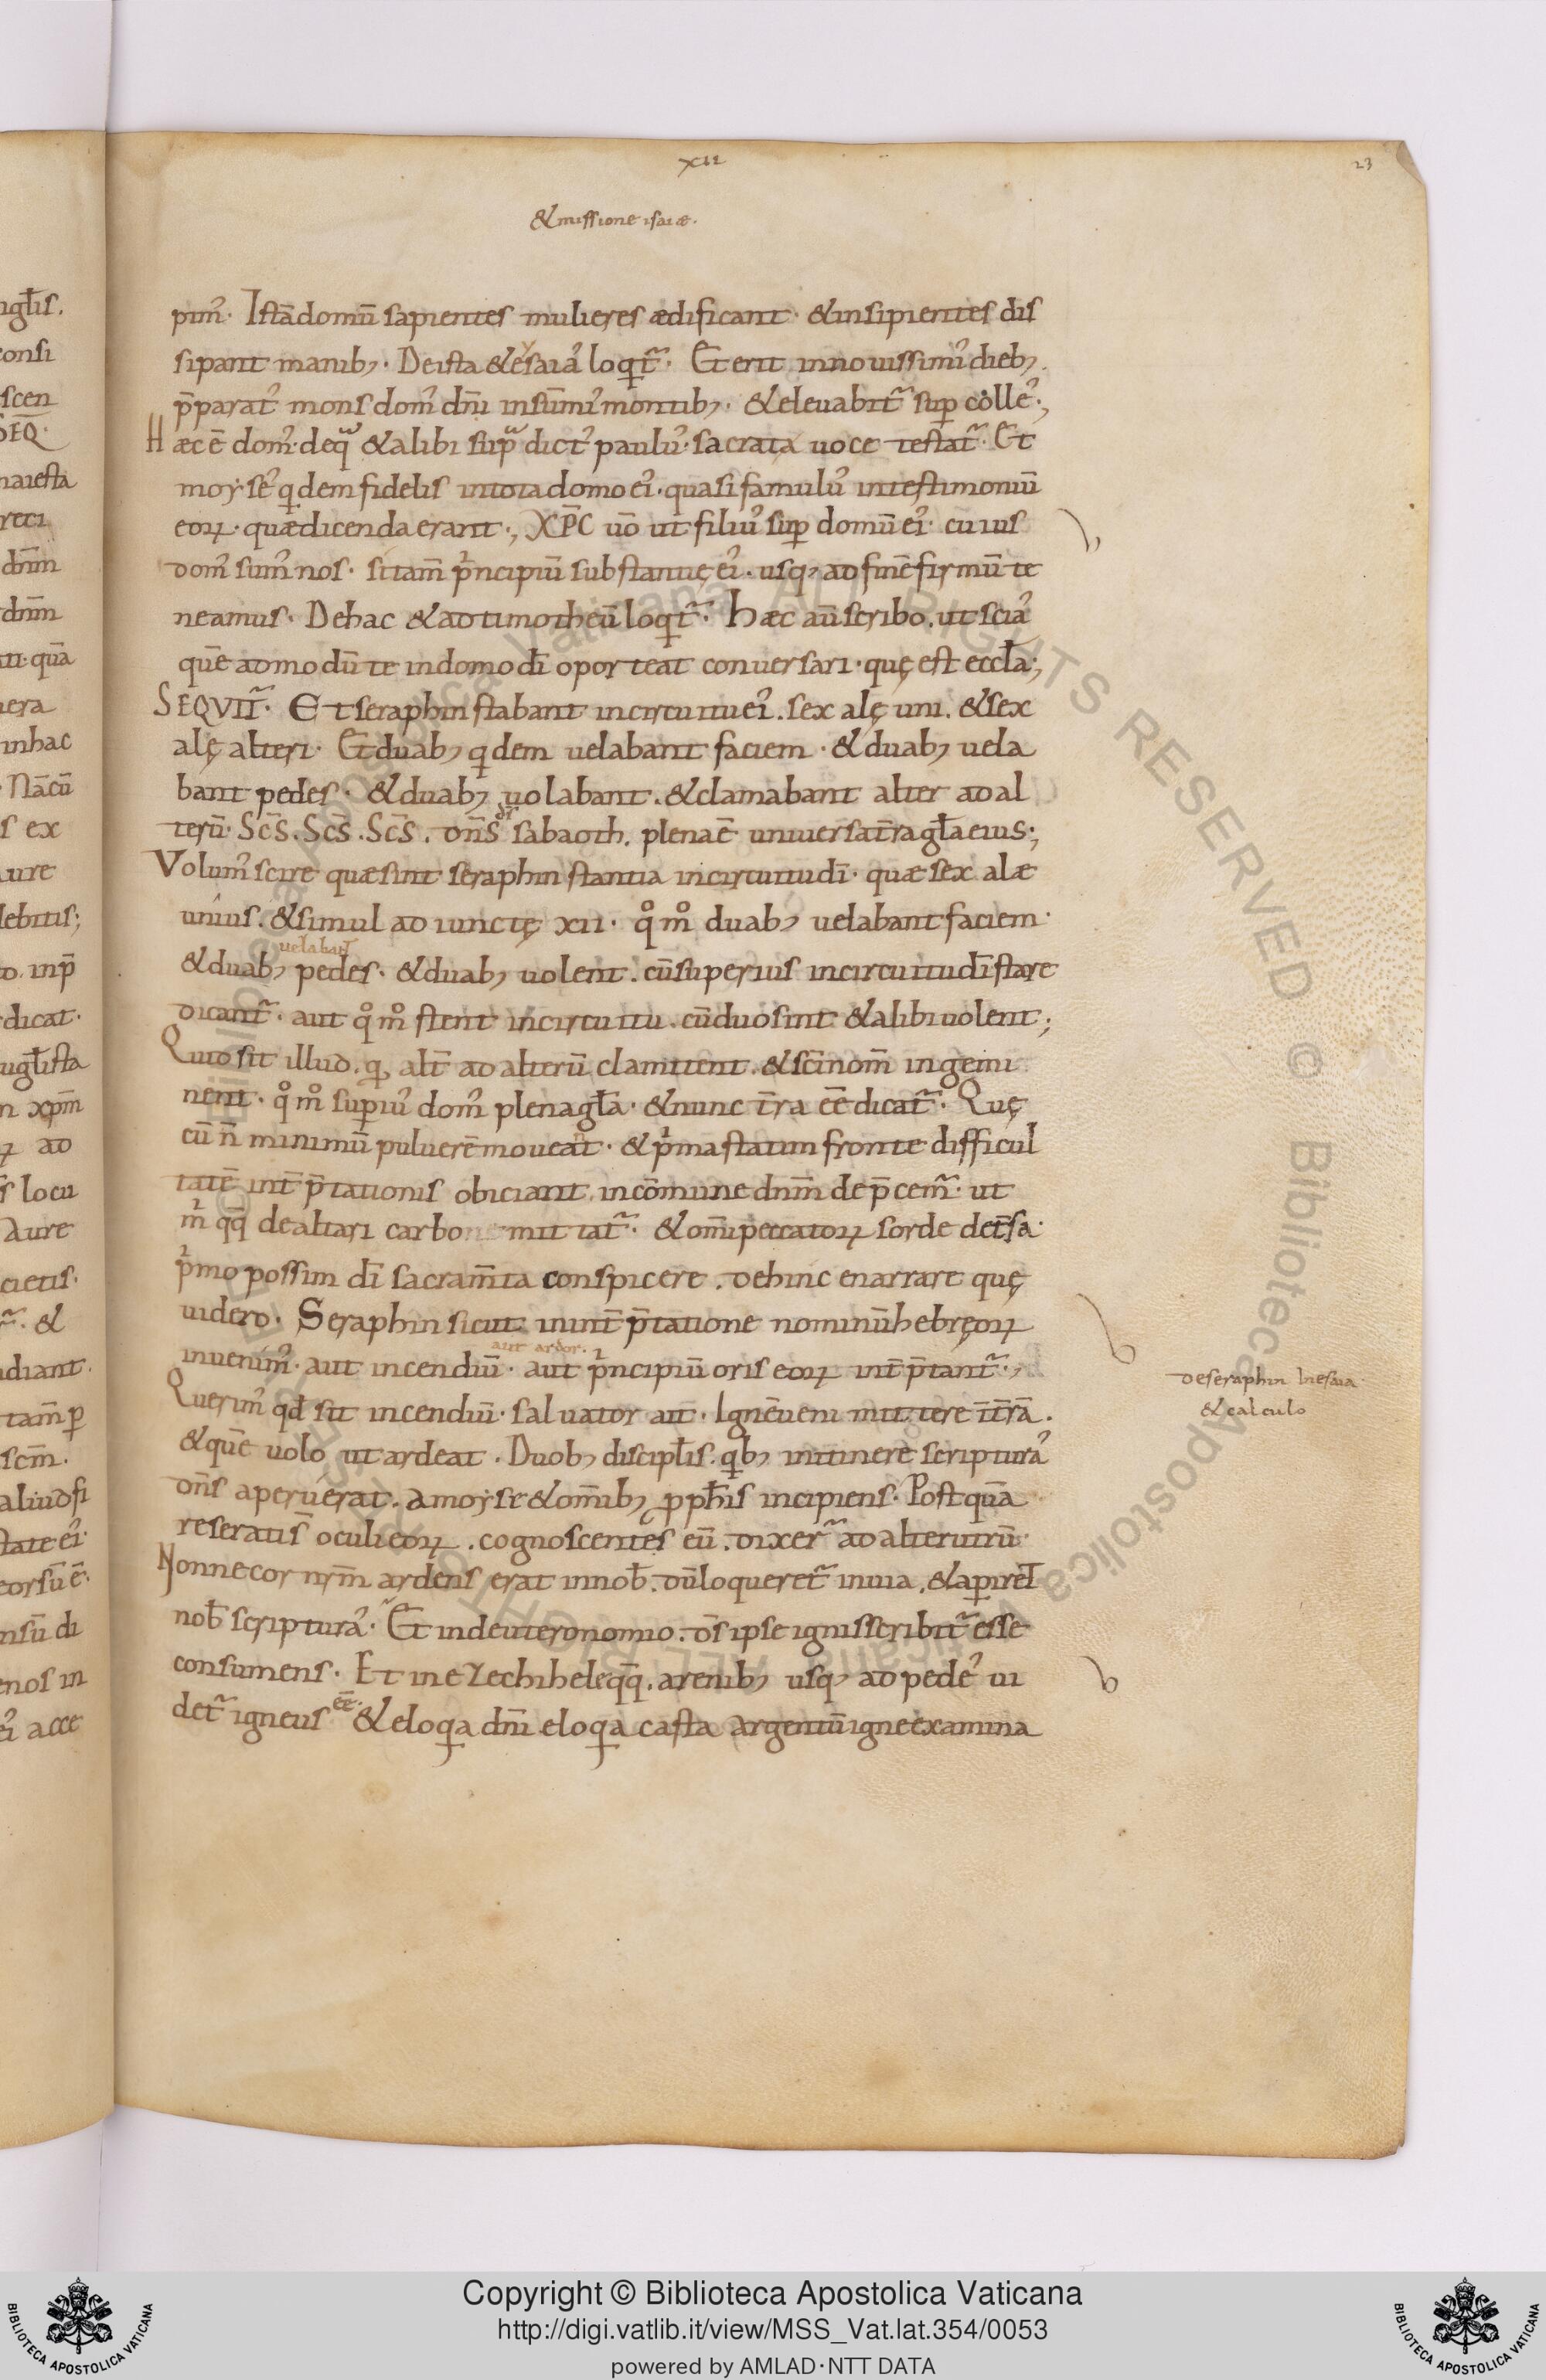 XII
23
& missione isaiæ.
pim᾽. Istā domū sapientes mulieres ædificant. & insipientes dis
sipant manib;. De ista & esaia᾽ loqt̃. Et erit in nouissimi᾽ dieb;
p̄parat᾽ mons dom᾽ dn̄i in sūmi᾽ montib;. & eleuabit̃ sup colle᾽.;
Hæc ē dom᾽. de q̃ & alibi sup̃ dict᾽ paulu᾽. sacrata uoce testat̃. Et
moẏse᾽ qdem fidelis in tota domo ei᾽. quasi famulu᾽ in testimoniū
eoꝝ. quæ dicenda erant.; XP̄C uō ut filiu᾽ sup domū ei᾽. cuius
dom᾽ sum᾽ nos. si tam̄ pⁱncipiū substantię ei᾽. usq; ad finē firmū te
neamus. De hac & ad timotheū loqt̃. Hæc aū scribo. ut scia᾽
quē ad modū te in domo dī oporteat conuersari. quę est eccła;
SEQVIT̃. Et seraphin stabant in circuitu ei᾽. sex alę uni. & sex
alę alteri. Et duab; qdem uelabant faciem. & duab; uela
bant pedes. & duab; uolabant. & clamabant alter ad al
terū. Sc̄s. Sc̄s. Sc̄s. dn̄s ds̄ sabaoth. plena ē uniuersa t̄ra gła eius;
Volum᾽ scire quæ sint seraphin stantia in circuitu dī. quæ sex alæ
unius. & simul ad iunctę xii. qo mo duab; uelabant faciem.
uelabant
& duab; pedes. & duab; uolent. cū superius in circuitu dī stare
dicant̃. aut qo mo stent in circuitu. cū duo sint & alibi uolent;
Quid sit illud. q alt̄ ad alterū clamitent. & sc̄i nom̄ ingemi
nent. qo mo supiu᾽ dom᾽ plena gła. & nunc t̄ra ēē dicat̃. Quę
cū n̄ minimū puluerē moueant. & pⁱma statim fronte difficul
tatē int̄p̄tationis obiciant in cōmune dnm̄ dep̄cem᾽. ut
mⁱ qq̄ de altari carbo mittat̃. & om̄i peccatoꝝ sorde det̄sa.
pⁱmo possim dī sacram̄ta conspicere. dehinc enarrare quę
uidero. Seraphin sicut in int̄p̄tatione nominū hebręoꝝ
aut ardor.
inuenim᾽. aut incendiū. aut pⁱncipiū oris eoꝝ int̄p̄tant̃.;
Querim᾽ qd sit incendiū. saluator ait. Ignē ueni mittere ī t̄rā.
& quē uolo ut ardeat. Duob; discipłis. qb; in itinere scriptura᾽
dn̄s aperuerat. a moẏse & om̄ib; pphīs incipiens. Post quā
reseratis oculi eoꝝ. cognoscentes eū. dixer̃ ad alterutrū.
Nonne cor nrm̄ ardens erat in nob̄. dū loqueret̃ in uia, & apiret
nob̄ scriptura᾽. Et in deuteronomio. ds̄ ipse ignis scribit̃ esse
consumens. Et in ezechihele qq̄. a renib; usq; ad pede᾽ ui
det̃ igneus ēē. & eloqa dn̄i eloqa casta argentū igne examina
de seraphin in esaia
& calculo
Copyright © Biblioteca Apostolica Vaticana
http://digi.vatlib.it/view/MSS_Vat.lat.354/0053
powered by AMLAD·NTT DATA